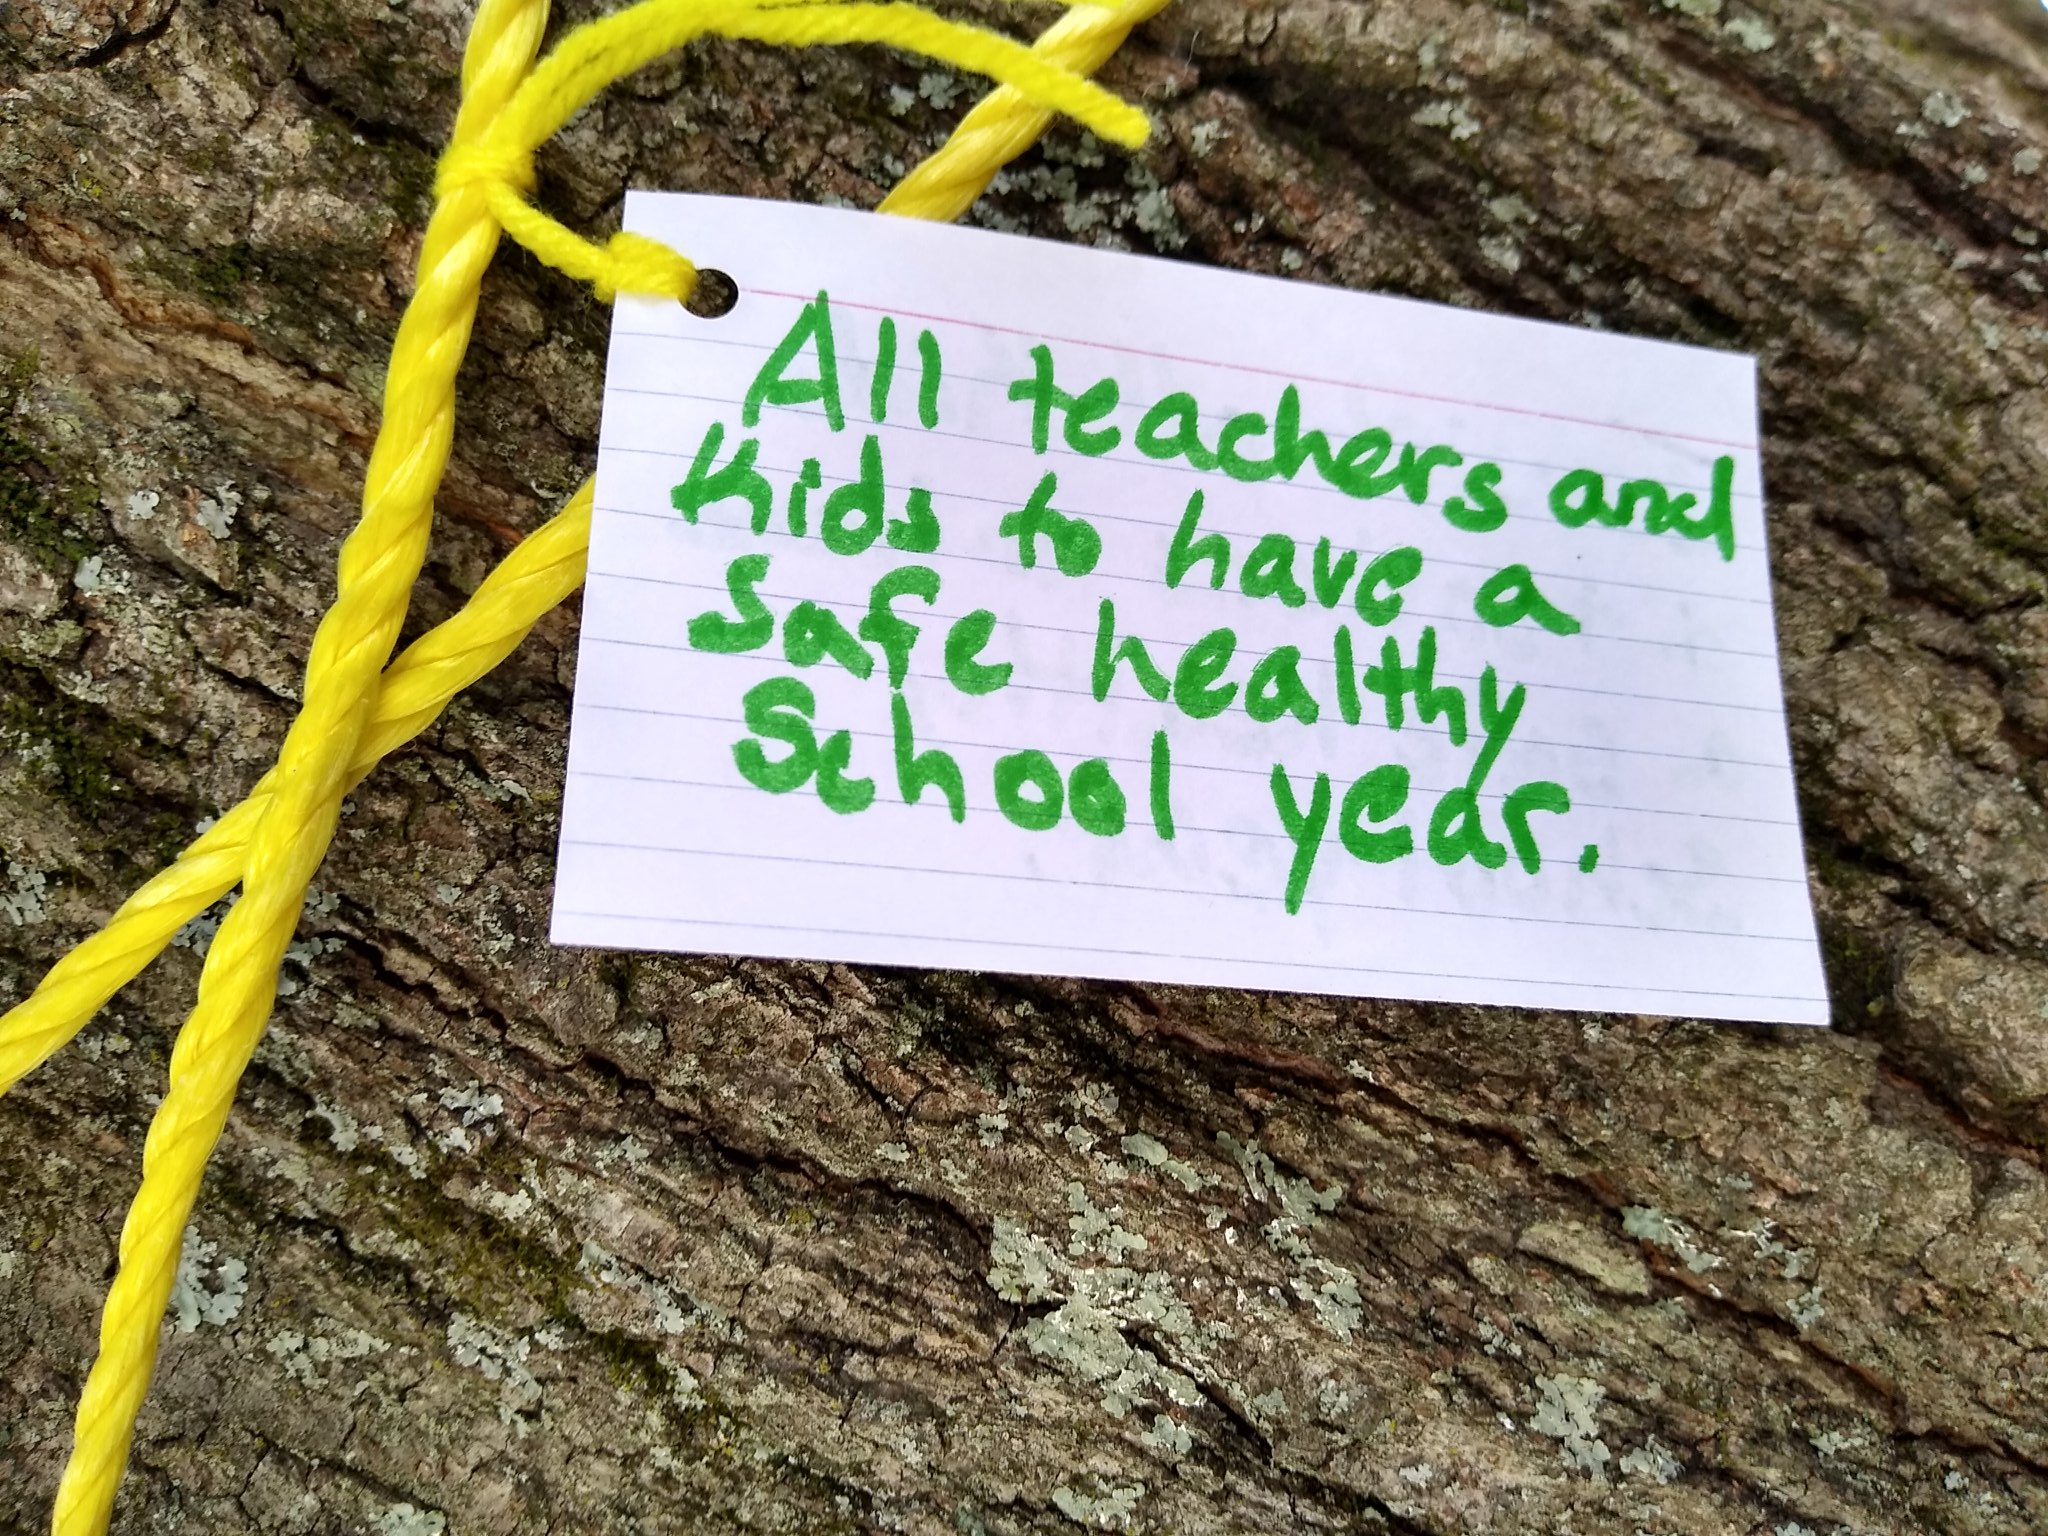 All teachers and
Kids to have a
safe healthy
School year.